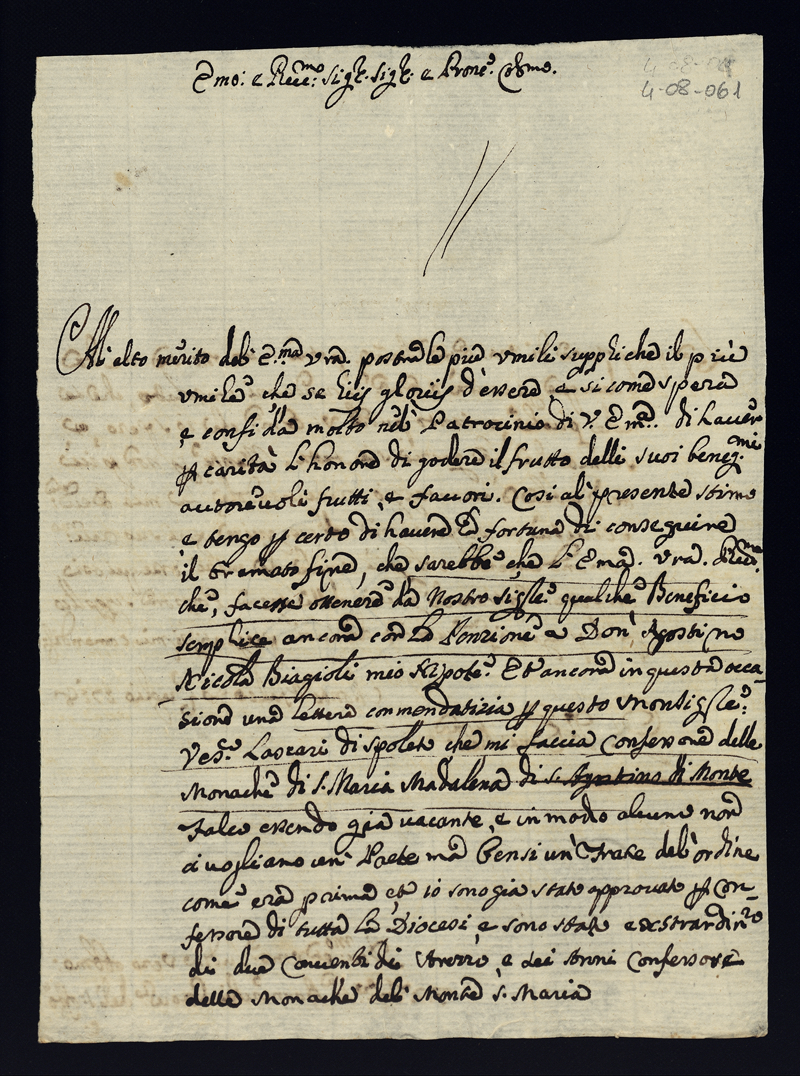 Emo: e Recc:mo Sigr. Sigr. e Prone: Colmo.
4-08-061
All'alto merito dell' E:ma Vra. postra le più umili suppliche il più
umile che se lijs glorijs d'essere, e si come spera
e confida molto nell' Patrocinio di V. Ema. di haver
p carità l'honore di godere il frutto delli suoi benig:mi
autorevoli frutti, e favori. Cosi al' presente stimo
e tengo p certo di havere la fortuna di conseguire
il bramato fine, che sarebbe che l'Ema. Vra. Recc:ma
che, facesse ottenere da Nostro Sigle: qualche Beneficio
semplice ancora con la Penzione a Don' Agostino
Nicola Biagioli mio Nipote. Et ancora in questa occa-
sione una lettera commendatizia p questo Monsigle:
Ves:o Lascari di Spoleto che mi faccia Confessore delle
Monache di S. Maria Madalena di S. Agostino di Monte
Falco essendo già vacante, e in modo alcuno non
ci vogliano un' Paete ma bensi un' Frate dell'ordine
come era prima, et io sono gia stato approvato p Con-
fessore di tutta la Diocesi, e sono stato exstraordin:ro
di due Conventi di Arezzo, e dei Anni Confessore
delle Monache dell' Monte S. Maria